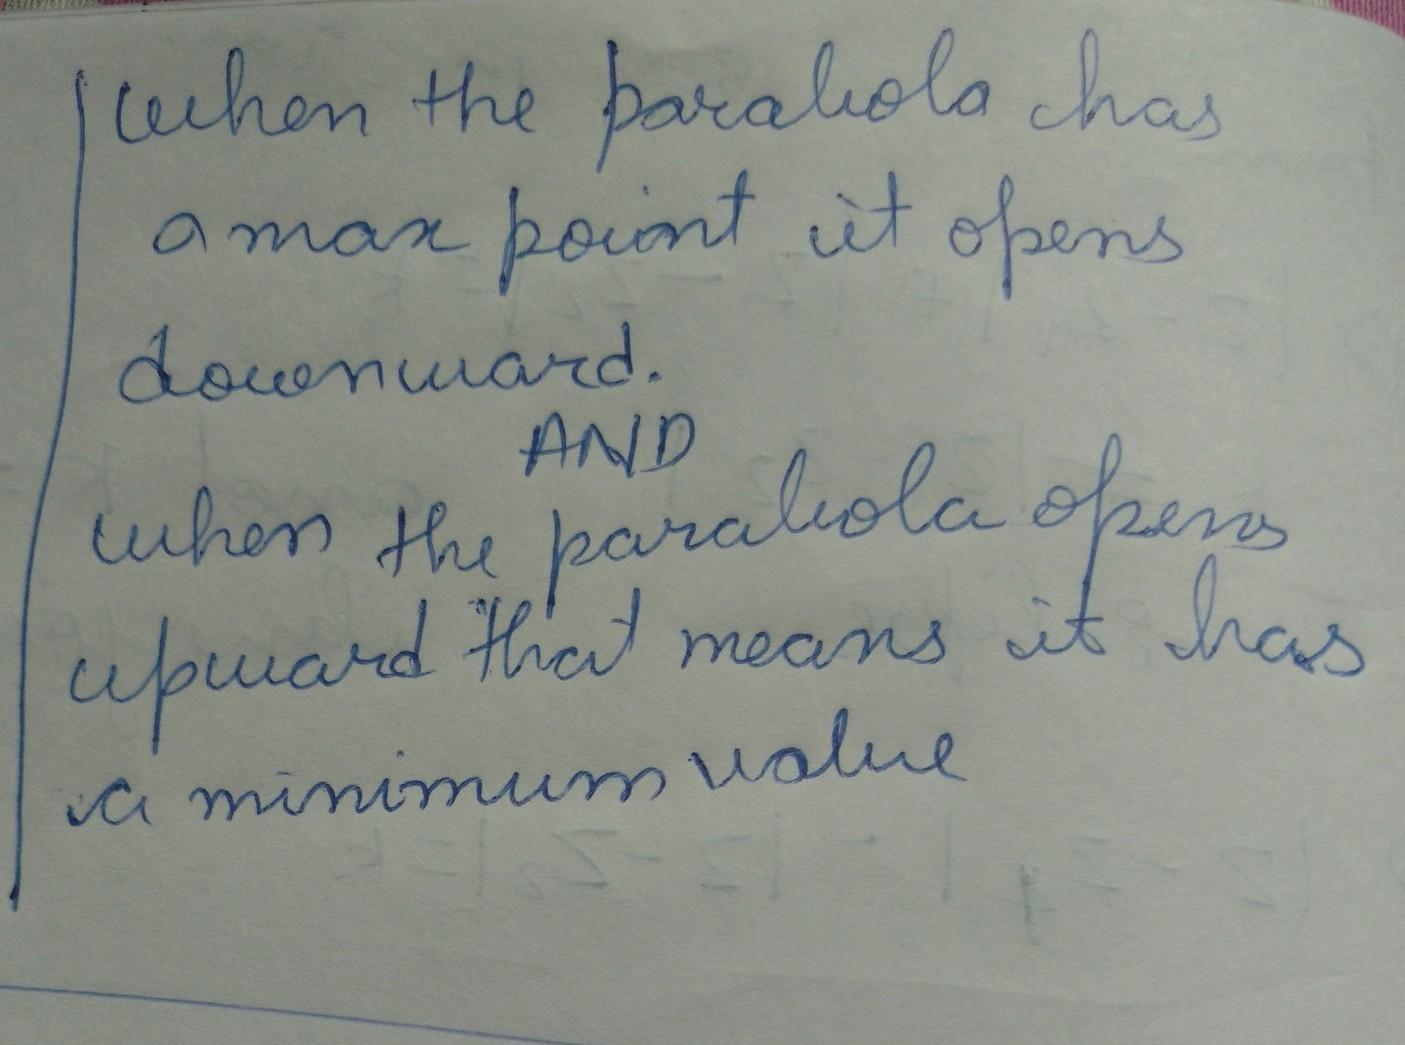 when the parabola has
a max point it opens
downward.
AND
when the parabola opens
upward that means it has
a minimum value